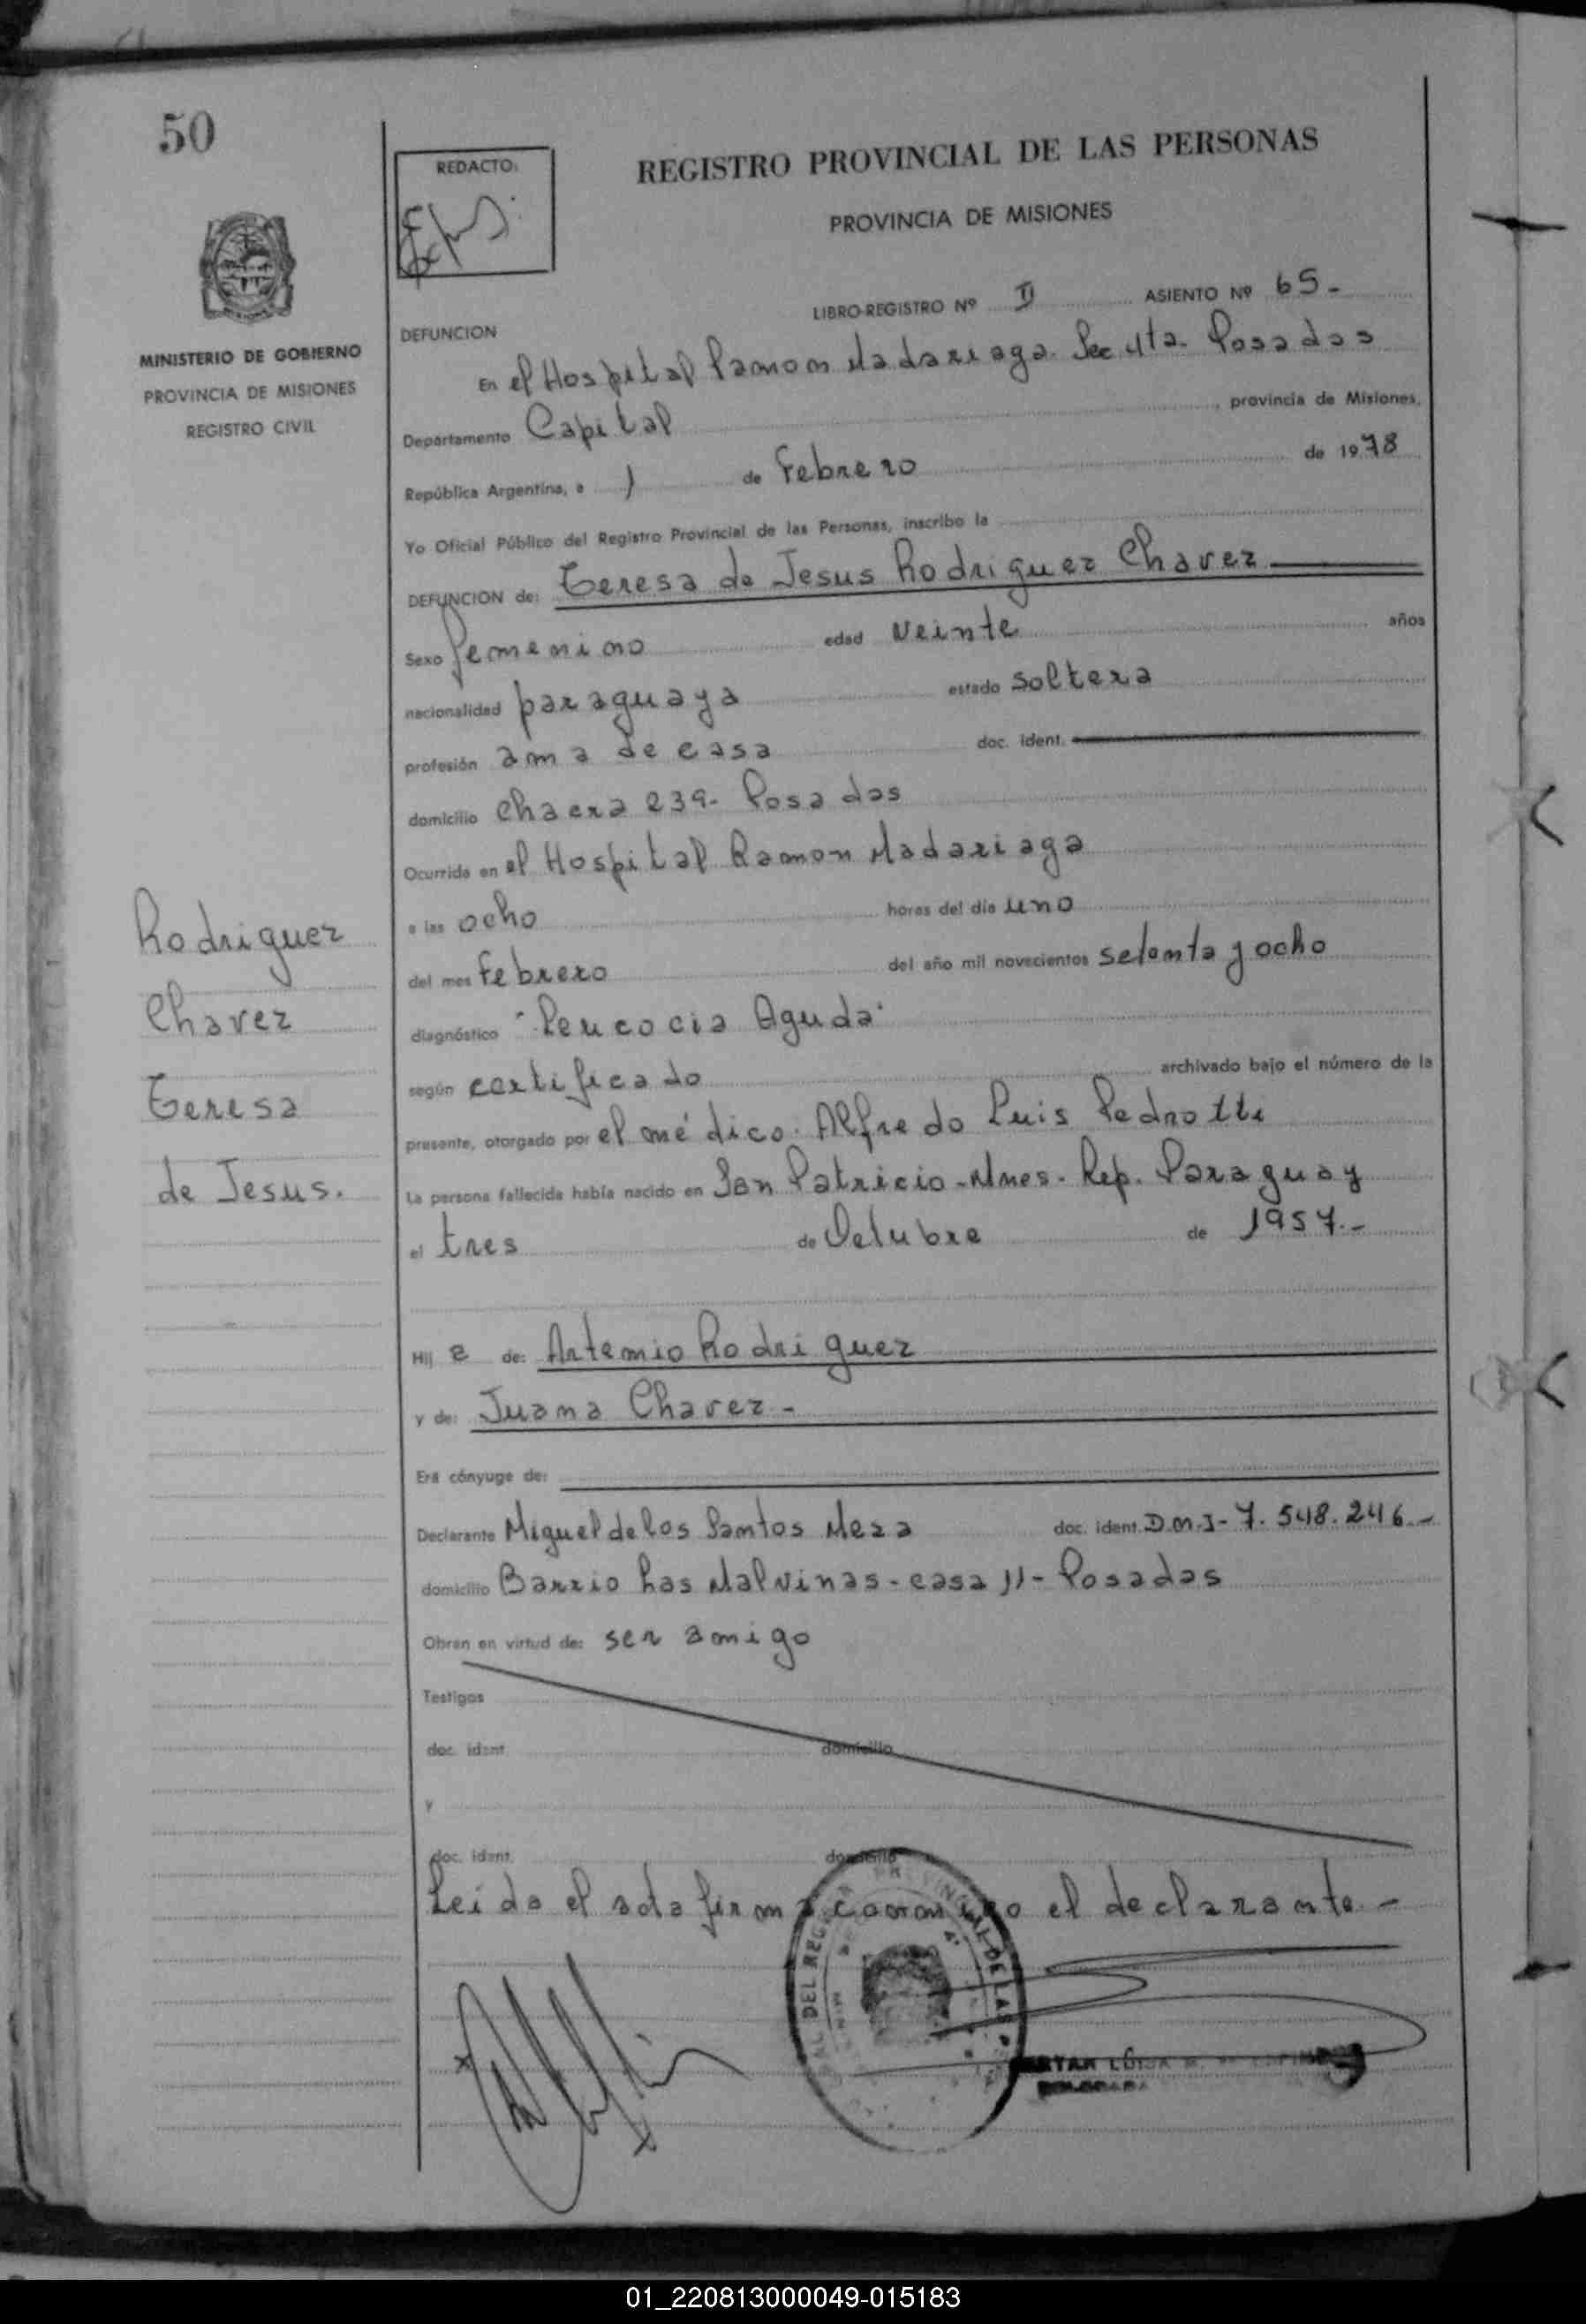 50
REDACTO:
REGISTRO PROVINCIAL DE LAS PERSONAS
PROVINCIA DE MISIONES
MINISTERIO DE GOBIERNO
PROVINCIA DE MISIONES
REGISTRO CIVIL
LIBRO-REGISTRO Nº II ASIENTO Nº 65.-
DEFUNCION
En el Hospital Ramon Madariaga. Sec 4ta. Posadas
Departamento Capital, provincia de Misiones,
República Argentina, a 1 de Febrero de 1978
Yo Oficial Público del Registro Provincial de las Personas, inscribo la
DEFUNCION de: Teresa de Jesus Rodriguez Chavez
Sexo femenino edad veinte años
nacionalidad paraguaya estado soltera
profesión ama de casa doc. ident.
domicilio Chacra 239- Posadas
Ocurrida en el Hospital Ramon Madariaga
a las ocho horas del día uno
del mes Febrero del año mil novecientos setenta y ocho
diagnóstico "Leucocia Aguda"
según certificado archivado bajo el número de la
presente, otorgado por el médico. Alfredo Luis Pedrotti
La persona fallecida había nacido en San Patricio-Mnes- Rep. Paraguay
el tres de Octubre de 1957.-
Hij a de: Artemio Rodriguez
y de: Juana Chavez-
Era cónyuge de:
Declarante Miguel de los Santos Meza doc. ident. D.N.I- 7.548.246.-
domicilio Barrio Las Malvinas-casa 11- Posadas
Obran en virtud de: ser amigo
Testigos
doc. ident. domicilio
y
doc. ident. domicilio
Leida el acta firma conmigo el declarante.-
Rodriguez
Chavez
Teresa
de Jesus.
DEL REG DE LAS
LUISA
01_220813000049-015183